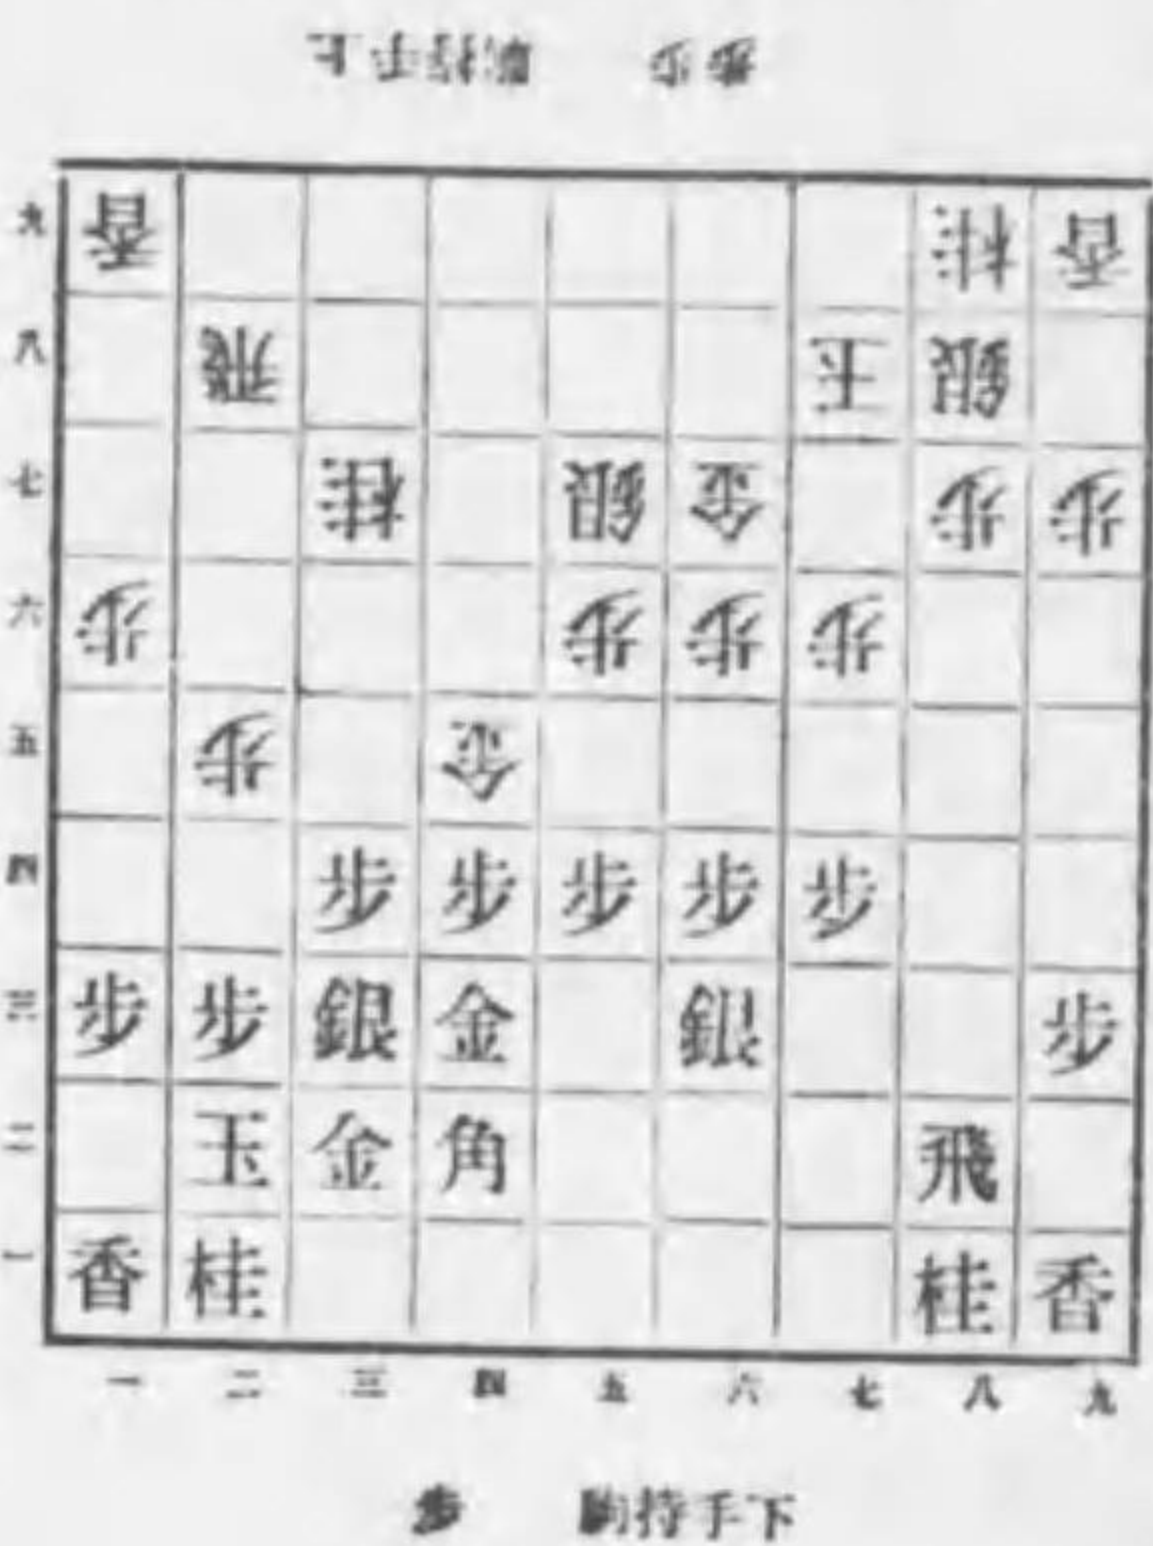 上手持駒 歩歩
九 香 桂 香
八 飛 玉 銀
七 桂 銀 金 歩 歩
六 歩 歩 歩 歩
五 歩 金
四 歩 歩 歩 歩 歩
三 歩 歩 銀 金 銀 歩
二 玉 金 角 飛
一 香 桂 桂 香
一 二 三 四 五 六 七 八 九
下手持駒 歩